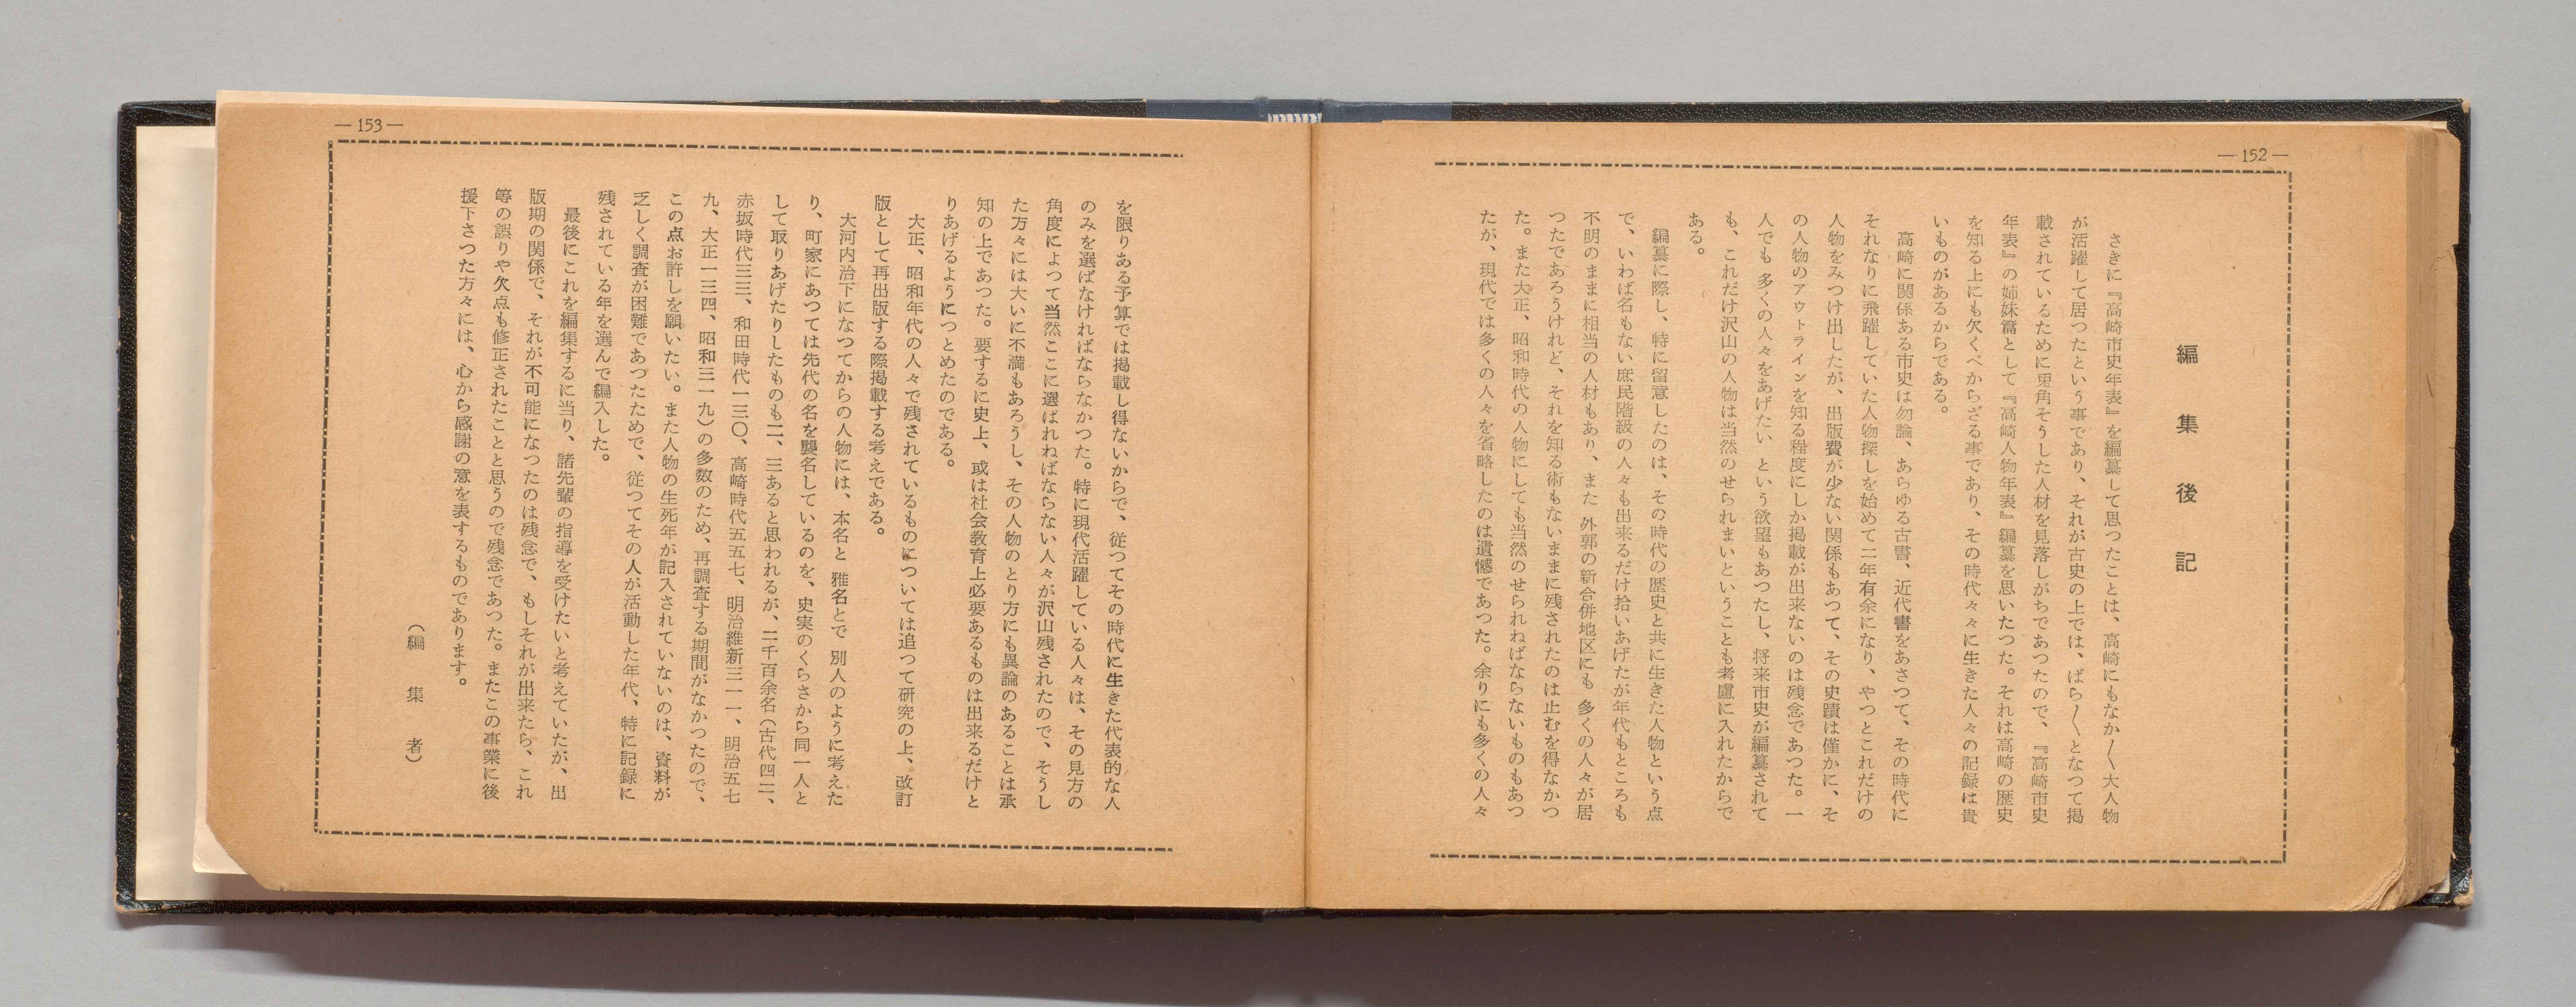 —152—
編集後記
さきに『高崎市史年表』を編纂して思つたことは、高崎にもなか〱大人物
が活躍して居つたという事であり、それが古史の上では、ばら〱となつて掲
載されているために兎角そうした人材を見落しがちであつたので、『高崎市史
年表』の姉妹篇として『高崎人物年表』編纂を思いたつた。それは高崎の歴史
を知る上にも欠くべからざる事であり、その時代々々に生きた人々の記録は貴
いものがあるからである。
高崎に関係ある市史は勿論、あらゆる古書、近代書をあさつて、その時代に
それなりに飛躍していた人物探しを始めて二年有余になり、やつとこれだけの
人物をみつけ出したが、出版費が少ない関係もあつて、その史蹟は僅かに、そ
の人物のアウトラインを知る程度にしか掲載が出来ないのは残念であつた。一
人でも多くの人々をあげたいという欲望もあつたし、将来市史が編纂されて
も、これだけ沢山の人物は当然のせられまいということも考慮に入れたからで
ある。
編纂に際し、特に留意したのは、その時代の歴史と共に生きた人物という点
で、いわば名もない庶民階級の人々も出来るだけ拾いあげたが年代もところも
不明のままに相当の人材もあり、また外郭の新合併地区にも多くの人々が居
つたであろうけれど、それを知る術もないままに残されたのは止むを得なかつ
た。また大正、昭和時代の人物にしても当然のせられねばならないものもあつ
たが、現代では多くの人々を省略したのは遺憾であつた。余りにも多くの人々
—153—
を限りある予算では掲載し得ないからで、従つてその時代に生きた代表的な人
のみを選ばなければならなかつた。特に現代活躍している人々は、その見方の
角度によつて当然ここに選ばれねばならない人々が沢山残されたので、そうし
た方々には大いに不満もあろうし、その人物のとり方にも異論のあることは承
知の上であつた。要するに史上、或は社会教育上必要あるものは出来るだけと
りあげるようにつとめたのである。
大正、昭和年代の人々で残されているものについては追つて研究の上、改訂
版として再出版する際掲載する考えである。
大河内治下になつてからの人物には、本名と雅名とで別人のように考えた
り、町家にあつては先代の名を襲名しているのを、史実のくらさから同一人と
して取りあげたりしたものも二、三あると思われるが、二千百余名（古代四二、
赤坂時代三三、和田時代一三〇、高崎時代五五七、明治維新三一一、明治五七
九、大正一三四、昭和三一九）の多数のため、再調査する期間がなかつたので、
この点お許しを願いたい。また人物の生死年が記入されていないのは、資料が
乏しく調査が困難であつたためで、従つてその人が活動した年代、特に記録に
残されている年を選んで編入した。
最後にこれを編集するに当り、諸先輩の指導を受けたいと考えていたが、出
版期の関係で、それが不可能になつたのは残念で、もしそれが出来たら、これ
等の誤りや欠点も修正されたことと思うので残念であつた。またこの事業に後
援下さつた方々には、心から感謝の意を表するものであります。
（編集者）